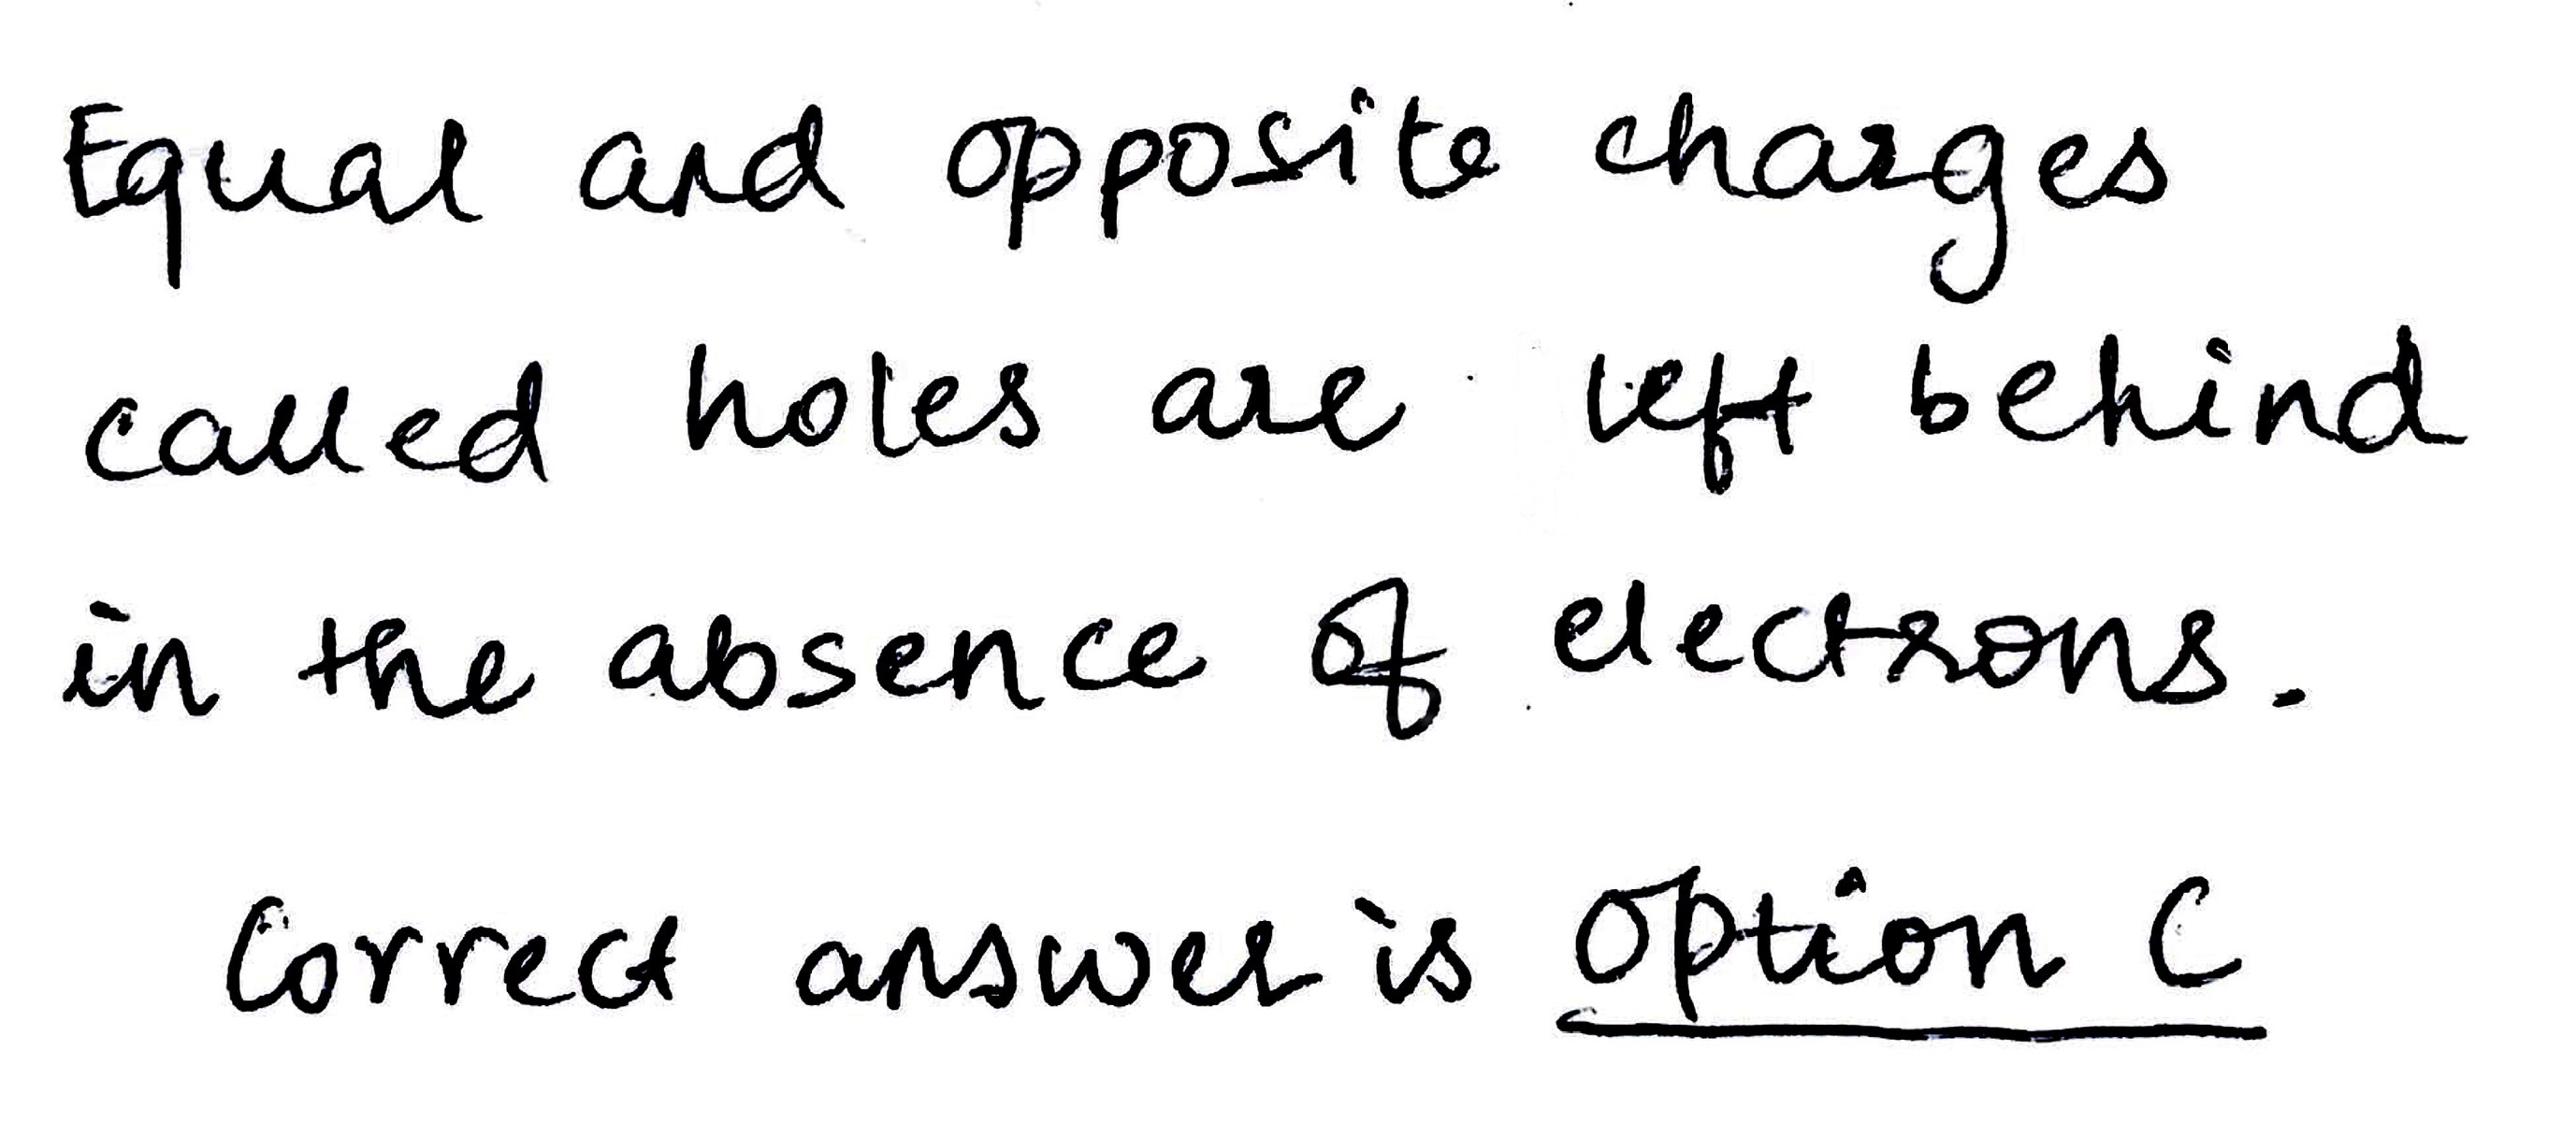 Equal and opposite charges
called holes are left behind
in the absence of electrons.
Correct answer is option C